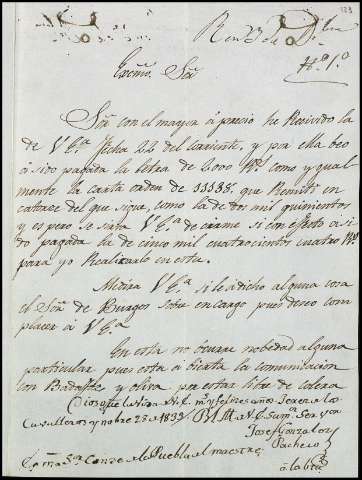 123
Rn 23 Dbre
Nº 1º
Exčmo Sor
Sor con el mayor aprecio he Recivido la
de V Eª fecha 22 del corriente, y por ella beo
á sido pagada la letra de 2000 Rs como ygual-
mente la carta orden de que Remití en
catorce del que sigue, como la de dos mil quinientos
y espero se sirva Vª Eª decirme si con efecto á si
do pagada la de cinco mil cuatrocientos cuatro Rs
para yo Realizarlo en esta.
Mirira V Eª si le á dicho alguna cosa
el Sor de Burgos sobre encargo pues deseo com
placer á V Eª
En esta no ocurre nobedad alguna
particular pues esta abierta la comunicacion
con Badajoz y oliva por estar libre de colera
Dios gue la Vida á V.E. ms y felices años Jerez de los
Cavalleros y nobre 25 de 1833 BLM á V.E. su mor Servor
Jose Gonzalez
Pacheco
Exčmo Sor Conde de la Puebla del maestre